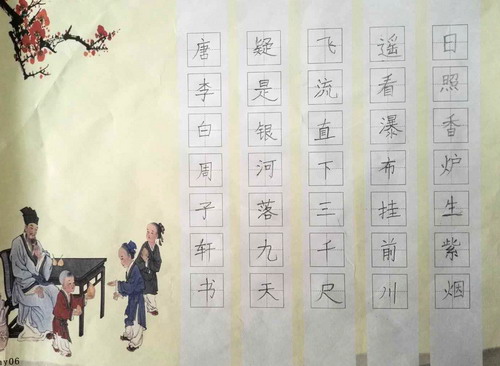 日照香炉生紫烟
遥看瀑布挂前川
飞流直下三千尺
疑是银河落九天
唐李白周子轩书